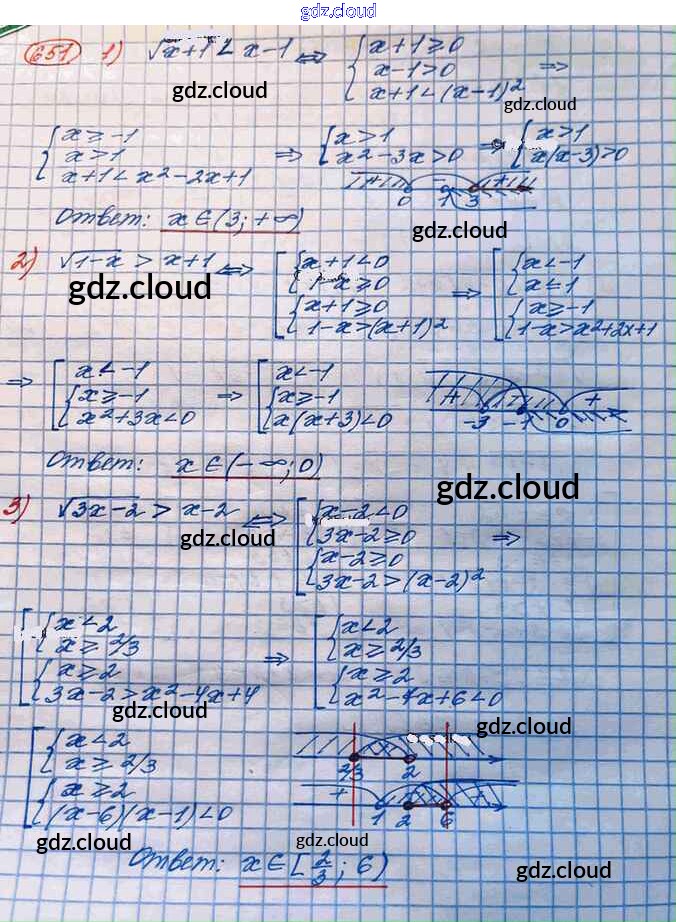 gdz.cloud
651 1) √x+1 < x-1 ⇔ { x+1≥0
x-1>0 ⇒
x+1<(x-1)²
gdz.cloud gdz.cloud
{ x≥-1 ⇒ { x>1 ⇒ { x>1
x>1 x²-3x>0 x(x-3)>0
x+1<x²-2x+1
+ + 0 1 3
Ответ: x∈(3;+∞)
gdz.cloud
2) √1-x > x+1 ⇔ [ { x+1<0 ⇒ [ { x<-1
1-x≥0 x<1
{ x+1≥0 { x≥-1
1-x>(x+1)² 1-x>x²+2x+1
gdz.cloud
⇒ [ x<-1 ⇒ [ x<-1
{ x≥-1 { x≥-1
x²+3x<0 x(x+3)<0
+ + -3 -1 0
Ответ: x∈(-∞;0)
gdz.cloud
3) √3x-2 > x-2 ⇔ [ { x-2<0
3x-2≥0 ⇒
{ x-2≥0
3x-2>(x-2)²
gdz.cloud
[ { x<2 ⇒ [ { x<2
x≥2/3 x≥2/3
{ x≥2 { x≥2
3x-2>x²-4x+4 x²-7x+6<0
gdz.cloud
gdz.cloud
[ { x<2
x≥2/3
{ x≥2
(x-6)(x-1)<0
2/3 2
+ 1 2 6
gdz.cloud
gdz.cloud
Ответ: x∈[2/3; 6)
gdz.cloud